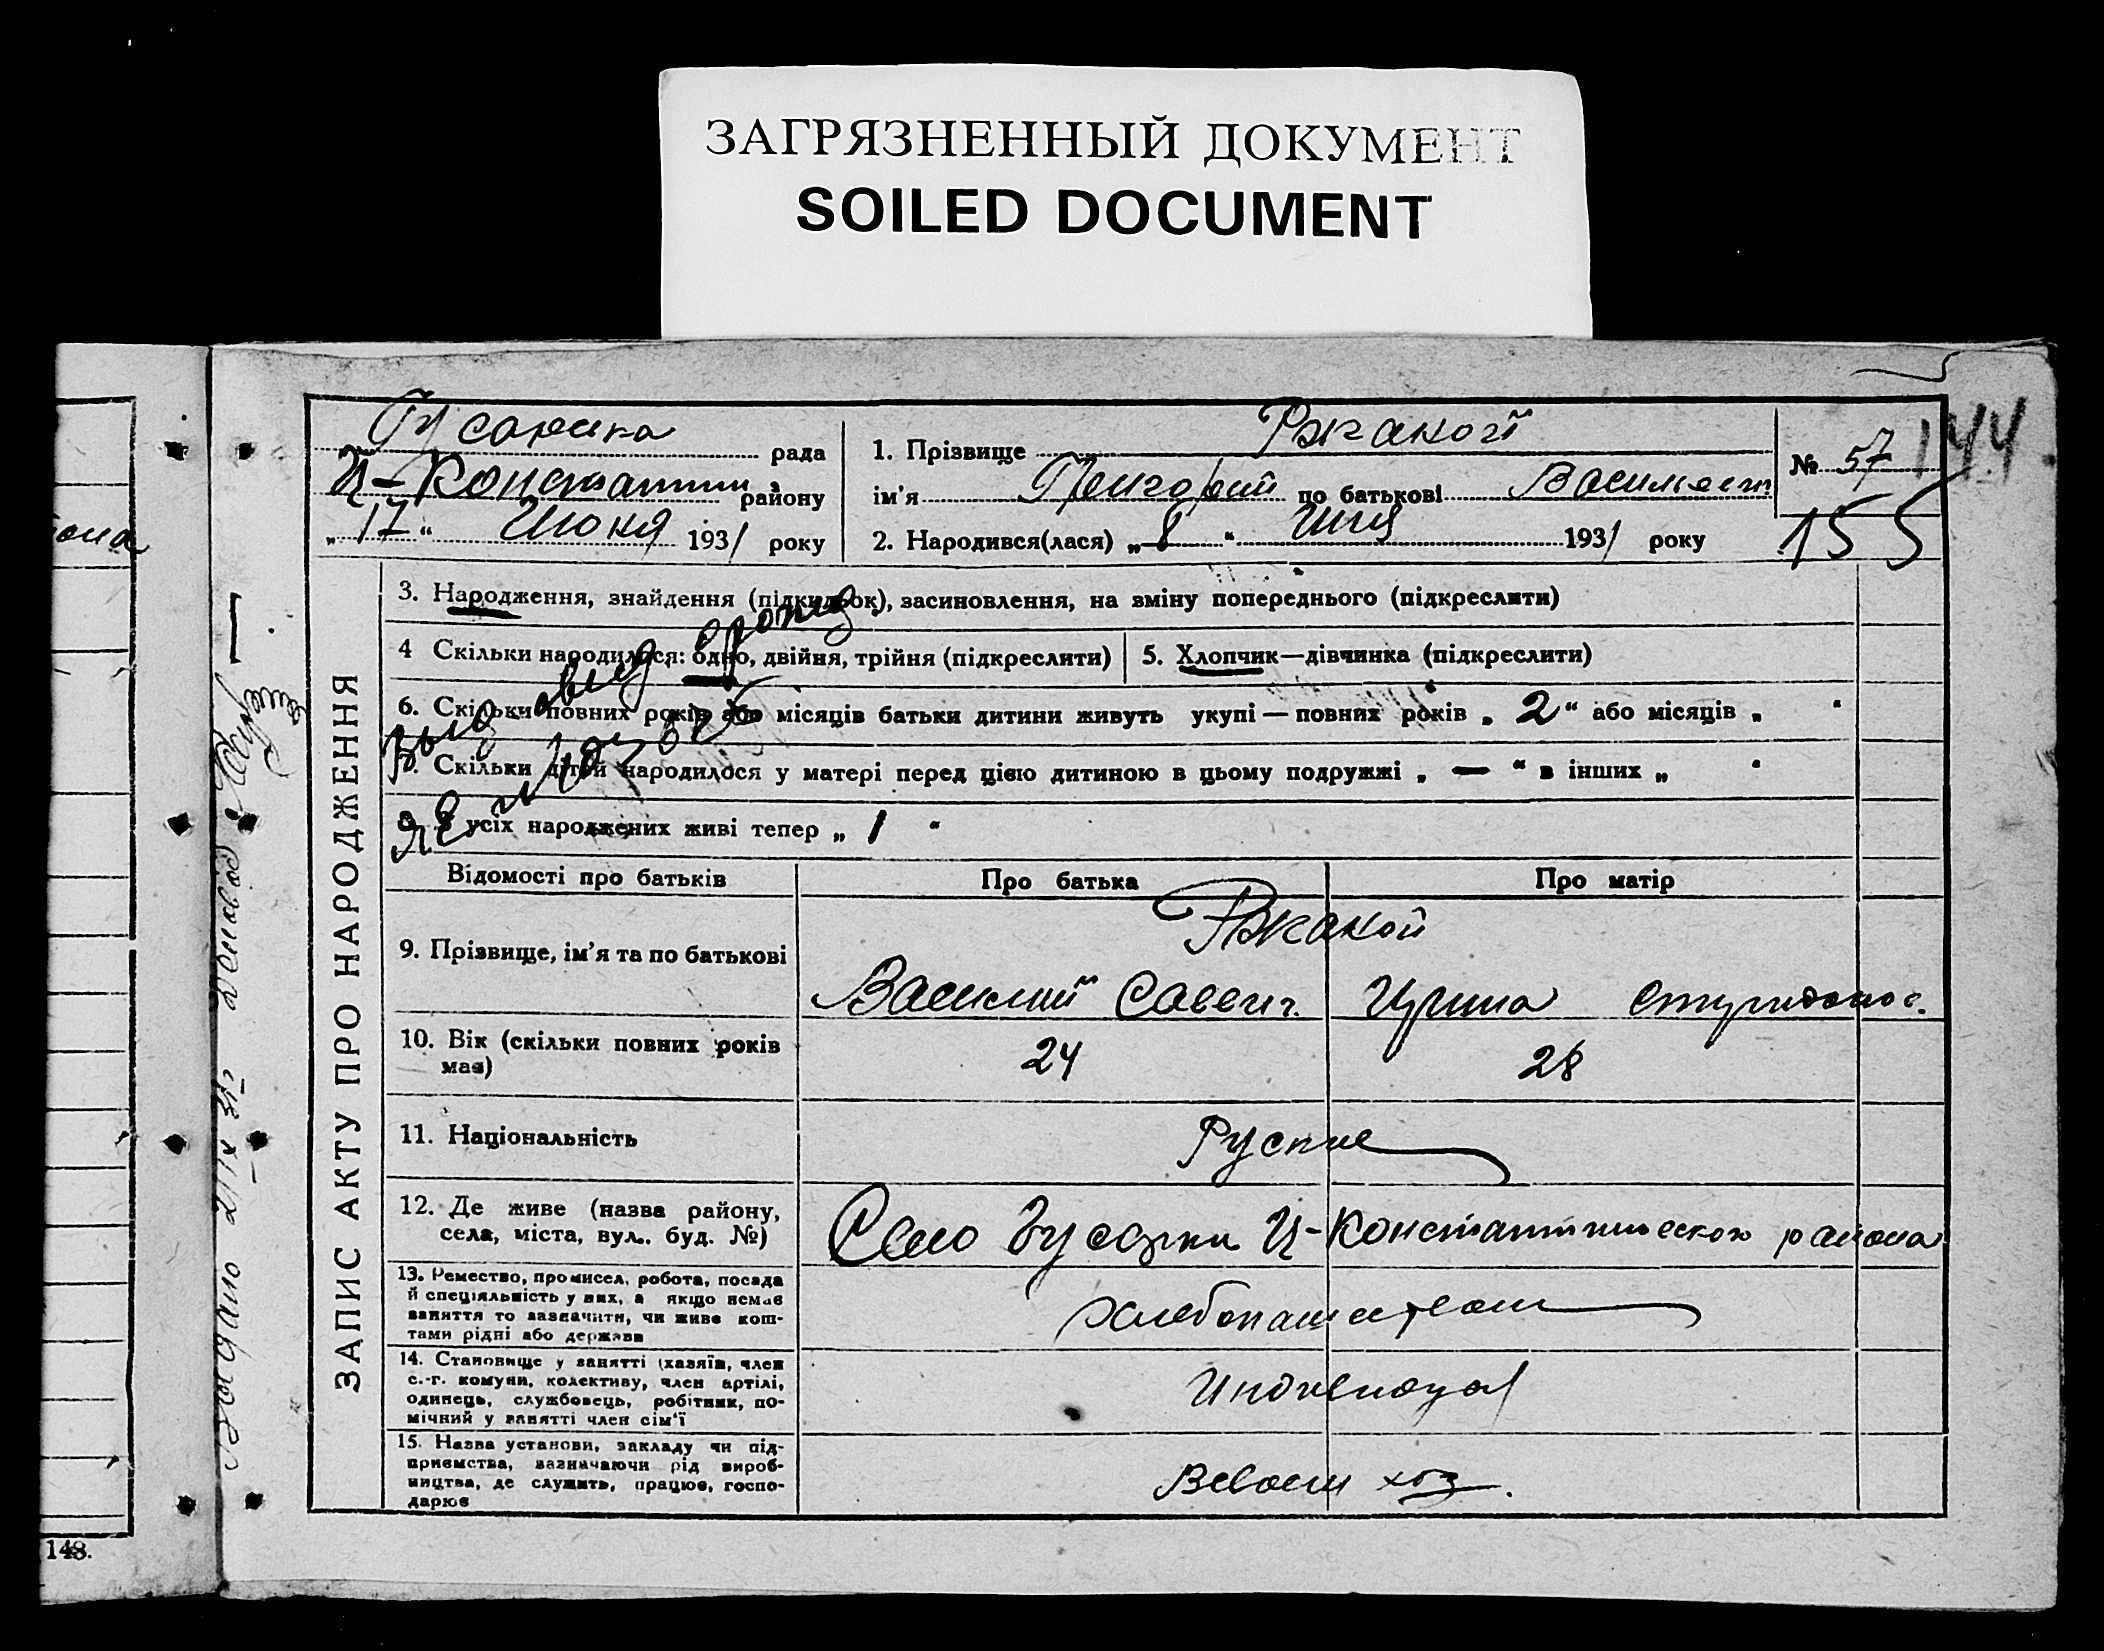 ЗАГРЯЗНЕННЫЙ ДОКУМЕНТ
SOILED DOCUMENT
рада
Ц-Константин району
„17“ Июня 1931 року
1. Прізвище Ржакой
ім'я Григорий по батькові Васильевич
2. Народився(лася) „8“ 1931 року
№ 57
144
155
ЗАПИС АКТУ ПРО НАРОДЖЕННЯ
3. Народження, знайдення (підкидьок), засиновлення, на зміну попереднього (підкреслити)
4 Скільки народилося: одно, двійня, трійня (підкреслити)
5. Хлопчик—дівчинка (підкреслити)
6. Скільки повних років або місяців батьки дитини живуть укупі — повних років „2“ або місяців „ “
7. Скільки дітей народилося у матері перед цією дитиною в цьому подружжі „—“ в інших „ “
8. З усіх народжених живі тепер „1“
Відомості про батьків
Про батька
Про матір
9. Прізвище, ім'я та по батькові
Ржакой
Василий Савич.
Ирина
10. Вік (скільки повних років має)
24
28
11. Національність
Руские
12. Де живе (назва району,
села, міста, вул., буд. №)
Село Гусарки Ц-Константиновского района
13. Ремество, промисел, робота, посада
й спеціяльність у них, а якщо немає
заняття то зазначити, чи живе кош-
тами рідні або держави
хлебопашеством
14. Становище у занятті (хазяїн, член
с.-г. комуни, колективу, член артілі,
одинець, службовець, робітник, по-
мічний у занятті член сім'ї
15. Назва установи, закладу чи під-
приємства, зазначаючи рід вироб-
ництва, де служить, працює, госпо-
дарює
В своем хоз.
148.